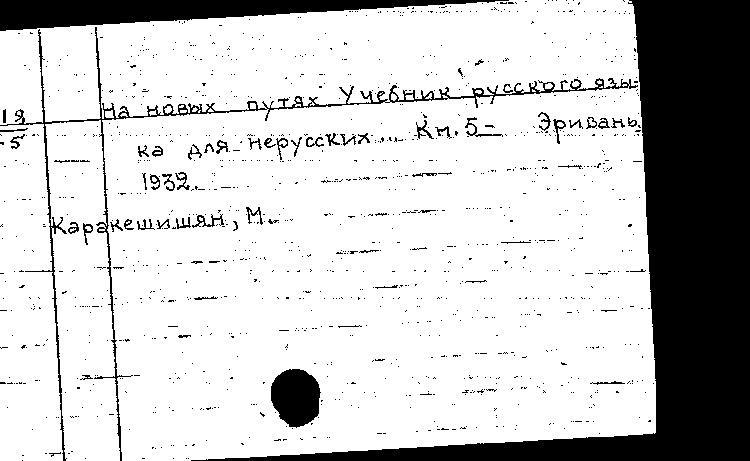 На новых путях Учебник русского язы-
18
-5
ка для нерусских... Кн. 5- Эривань
1932.
Каракешишян, М.